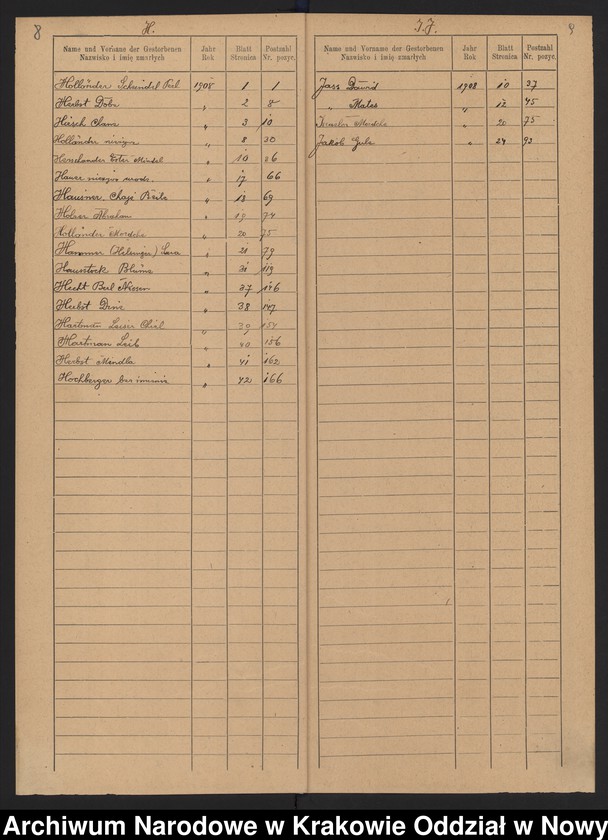 8
H.
Name und Vorname der Gestorbenen
Nazwisko i imię zmarłych
Jahr
Rok
Blatt
Stronica
Postzahl
Nr. pozyc.
Holländer Scheindel 1908 1 1
Herbst Dobe " 2 8
Hirsch Chane " 3 10
Holländer " 8 30
Herschander Ester Mindel " 10 36
Hauser " 17 66
Hausner Chaje Beile " 18 69
Holzer Abraham " 19 74
Holländer Mordche " 20 75
Hammer (Hilsinger) Sara " 21 79
Haustock Blüma " 31 119
Hecht Berl Nissen " 37 146
Herbst " 38 147
Hartman Leiser Chiel " 39 154
Hartman Leib " 40 156
Herbst Mendla " 41 162
Hochberger bez imienia " 42 166
I.J.
9
Name und Vorname der Gestorbenen
Nazwisko i imię zmarłych
Jahr
Rok
Blatt
Stronica
Postzahl
Nr. pozyc.
Jass Dawid 1908 10 37
" Males " 12 45
Mordche " 20 75
Jakób " 24 93
Archiwum Narodowe w Krakowie Oddział w Nowy